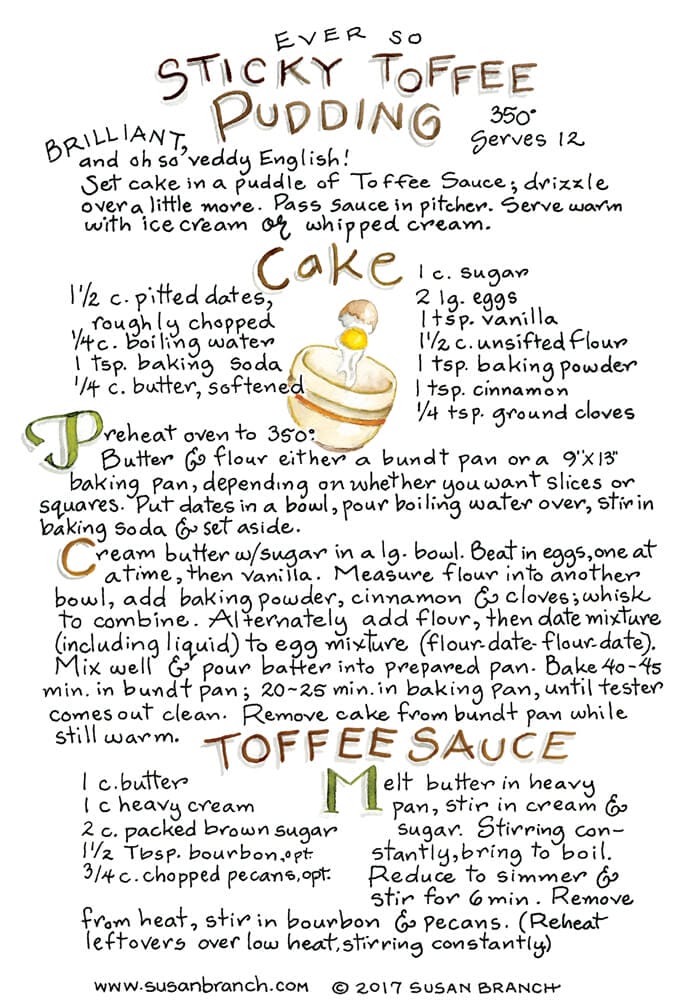 EVER SO
STICKY TOFFEE
PUDDING
350°
Serves 12
BRILLIANT,
and oh so veddy English!
Set cake in a puddle of Toffee Sauce; drizzle
over a little more. Pass sauce in pitcher. Serve warm
with ice cream or whipped cream.
Cake
1½ c. pitted dates,
roughly chopped
1¼ c. boiling water
1 tsp. baking soda
¼ c. butter, softened
1 c. sugar
2 lg. eggs
1 tsp. vanilla
1½ c. unsifted flour
1 tsp. baking powder
1 tsp. cinnamon
¼ tsp. ground cloves
Preheat oven to 350°.
Butter & flour either a bundt pan or a 9"x13"
baking pan, depending on whether you want slices or
squares. Put dates in a bowl, pour boiling water over, stir in
baking soda & set aside.
Cream butter w/sugar in a lg. bowl. Beat in eggs, one at
a time, then vanilla. Measure flour into another
bowl, add baking powder, cinnamon & cloves; whisk
to combine. Alternately add flour, then date mixture
(including liquid) to egg mixture (flour-date-flour-date).
Mix well & pour batter into prepared pan. Bake 40~45
min. in bundt pan; 20~25 min. in baking pan, until tester
comes out clean. Remove cake from bundt pan while
still warm.
TOFFEE SAUCE
1 c. butter
1 c heavy cream
2 c. packed brown sugar
1½ Tbsp. bourbon, opt.
3/4 c. chopped pecans, opt.
Melt butter in heavy
pan, stir in cream &
sugar. Stirring con-
stantly, bring to boil.
Reduce to simmer &
stir for 6 min. Remove
from heat, stir in bourbon & pecans. (Reheat
leftovers over low heat, stirring constantly)
www.susanbranch.com © 2017 SUSAN BRANCH